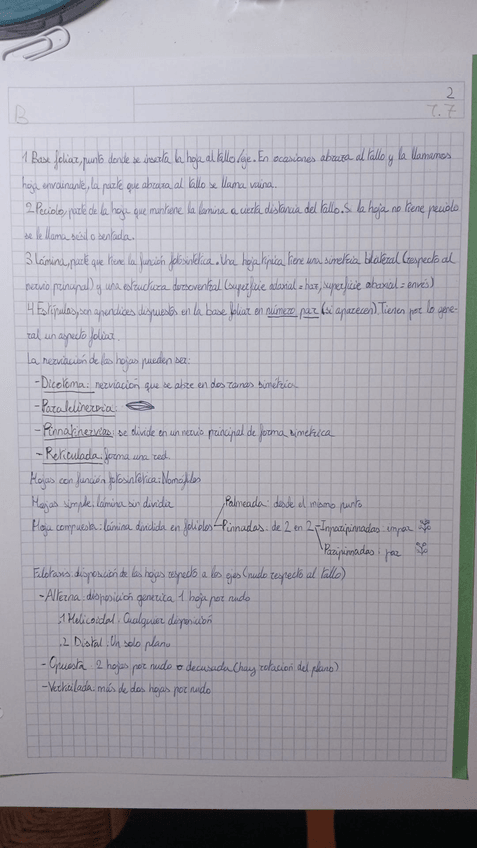 2
B
T.7
1 Base foliar, punto donde se inserta la hoja al tallo/eje. En ocasiones abraza al tallo y la llamamos
hoja envainante, la parte que abraza al tallo se llama vaina.
2 Peciolo, parte de la hoja que mantiene la lamina a cierta distancia del tallo. Si la hoja no tiene peciolo
se le llama sésil o sentada.
3 Lámina, parte que tiene la función fotosintética. Una hoja típica tiene una simetría bilateral (respecto al
nervio principal) y una estructura dorsoventral (superficie adaxial = haz, superficie abaxial = envés)
4 Estípulas, son apendices dispuestos en la base foliar en número par (si aparecen). Tienen por lo gene-
ral un aspecto foliar.
La nerviación de las hojas pueden ser:
- Dicotoma: nerviacion que se abre en dos ramas simétrica
- Paralelinervia:
- Pinnatinervias: se divide en un nervio principal de forma simetrica
- Reticulada forma una red
Hojas con función fotosintética: Nomofilos
Hojas simple: lámina sin dividir
Palmeada: desde el mismo punto
Hoja compuesta: lámina dividida en foliolos
Pinnadas: de 2 en 2
Imparipinnadas: impar
Paripinnadas: par
Filotaxis: disposición de las hojas respecto a los ejes (nudo respecto al tallo)
- Alterna: disposición generica 1 hoja por nudo
.1 Helicoidal: Cualquier disposición
.2 Distal: Un solo plano
- Opuesta 2 hojas por nudo o decusada (hay rotacion del plano)
- Verticilada: más de dos hojas por nudo